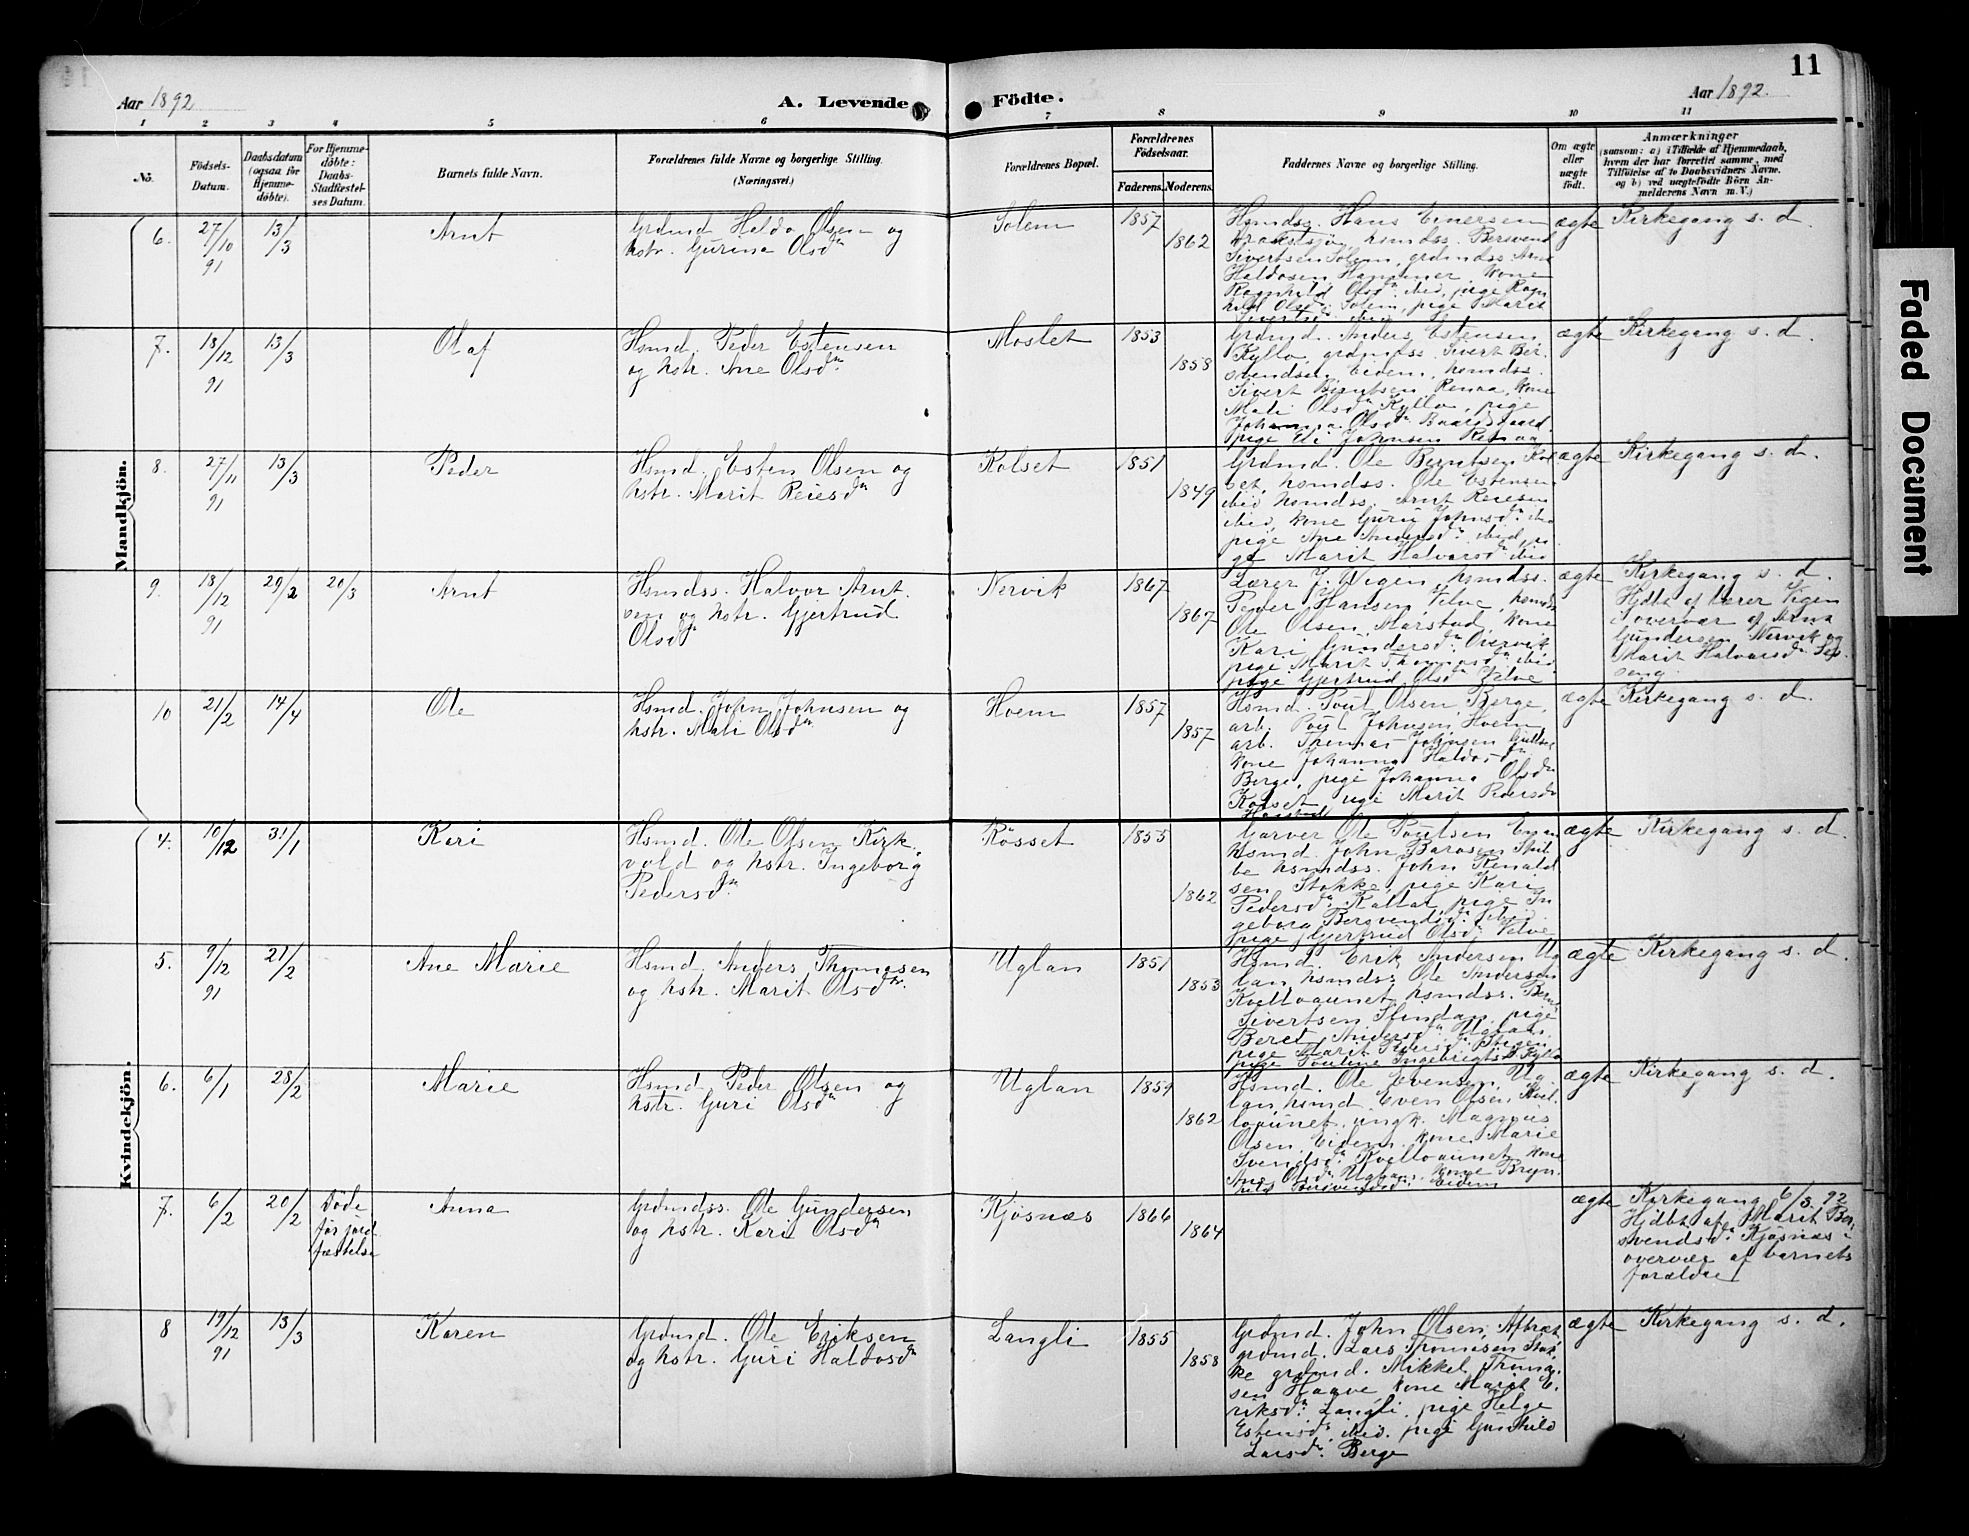 11
Aar 1892
A. Levende Födte.
Aar 1892.
1 2 3 4 5 6 7 8 9 10 11
No.
Födsels-Datum.
Daabsdatum (ogsaa för Hjemme-döbte).
For Hjemme-döbte: Daabs-Stadfæstel-ses Datum.
Barnets fulde Navn.
Forældrenes fulde Navne og borgerlige Stilling.
(Næringsvei.)
Forældrenes Bopæl.
Forældrenes Födselsaar.
Faderens.
Moderens.
Faddernes Navne og borgerlige Stilling.
Om ægte eller uægte födt.
Anmærkninger
(saasom: a) i Tilfælde af Hjemmedaab,
hvem der har forrettet samme, med
Tilföielse af to Daabsvidners Navne.
og b) ved uægtefödte Börn An-
melderens Navn m. V.)
Mandkjön.
6.
27/10 91
13/3
Arnt
Grdmd. Haldo Olsen og
hstr. Gurina Olsdr
Solem
1857
1862
Hsmdss. Hans Einersen
hsmdss. Bersvend
Sivertsen Solem, grdmdss. Arnt
Haldosen Hammer, kone
Ragnhild Olsdr ibid, pige Ragn
hild Olsdr Solem, pige Marit
ægte
Kirkegang s. d.
7.
18/12 91
13/3
Olaf
Hsmd. Peder Estensen
og hstr. Ane Olsdr
Moslet
1853
1858
Grdmd. Anders Estensen,
Kyllo, grdmdss. Sivert Ber-
svendsen Eidem, hsmdss.
Sivert Berntsen Renaa, kone
Mali Olsdr Kyllo, pige
Johanna Olsdr
pige Eli Johnsen Renaa
ægte
Kirkegang s. d.
8.
27/11 91
13/3
Peder
Hsmd. Esten Olsen og
hstr. Marit Reiesdr
Kolset
1851
1849
Grdmd. Ole Berntsen Kol
set, hsmdss. Ole Estensen
ibid hsmdss. Arnt Reiesen
ibid, kone Guru Johnsdr ibid
pige Ane Andersdr ibid, pi-
ge Marit Halvorsdr ibid
ægte
Kirkegang s. d.
9.
18/12 91
29/2
20/3
Arnt
Hsmdss. Halvor Arnt-
sen og hstr. Gjertrud
Olsdr
Nervik
1867
1867
Lærer J. Vigen, hsmdss.
Peder Hansen Velve, hsmds
Ole Olsen Marstad, kone
Kari Gundersdr Overvik
pige Marit Thomasdr ibid
pige Gjertrud Olsdr Velve
ægte
Kirkegang s. d.
Hjdbt af lærer Vigen
i overvær af Arnt
Gundersen Nervik og
Marit Halvorsdr
10
21/2
14/4
Ole
Hsmd. John Johnsen og
hstr. Mali Olsdr
Hoem
1857
1857
Hsmd. Poul Olsen Berge,
arb. Poul Johnsen Hoem
arb. Thomas Johnsen
kone Johanna Haldosdr
Berge, pige Johanna Olsdr
Kolset, pige Marit Pedersdr
ægte
Kirkegang s. d.
Kvindekjön.
4.
10/12
31/1
Kari
Hsmd. Ole Olsen Kirk-
vold og hstr. Ingeborg
Pedersdr
Røsset
1855
1862
Garver Ole Poulsen
Hsmd. John Barosen Stub-
be hsmdss. John Renald
sen Stokke, pige Kari
Pedersdr Kaltal, pige In
geborg Bersvendsdr ibid
pige Gjertrud Olsdr Velve
ægte
Kirkegang s. d.
5.
9/12 91
21/2
Ane Marie
Hsmd. Anders Thomasen
og hstr. Marit Olsdtr.
Uglan
1851
1853
Hsmd. Erik Andersen Ug
lan, hsmdss. Ole Andersen
Kvelloaunet, hsmdss. Bernt
Sivertsen Slindan, pige
Beret Andersdr Uglan
pige Marit Pedersdr Stugen
pige Pauline Ingebrigtsd. Kyllo
ægte
Kirkegang s. d.
6.
6/1
28/2
Marie
Hsmd. Peder Olsen og
hstr. Guri Olsdr
Uglan
1859
1862
Hsmd. Ole Evensen, Ug-
lan, hsmd. Even Olsen, Kvel-
loaunet, ungk. Magnus
Olsen Eidem, kone Marie
Svendsdr Kvelloaunet, kone
Ane Olsdr Uglan, kone Bryn-
hild Bersvendsdr Eidem
ægte
Kirkegang s. d.
7.
6/2
20/2
Døde
før stad
fæstelse
Anna
Grdmdss. Ole Gundersen
og hstr. Kari Olsdr
Kjøsnæs
1866
1864
ægte
Kirkegang 6/3 92
Hjdbt af Marit Ber-
svendsdr Kjøsnæs i
overvær af barnets
forældre
8
19/12 91
13/3
Karen
Grdmd. Ole Eriksen
og hstr. Guri Haldosdr
Langli
1855
1858
Grdmd. John Olsen Aftret,
grdmd. Lars Thomesen Stok-
ke grdmd. Mikkel Thoma-
sen Haave, kone Marit E-
riksdr Langli, pige Helge
Estensdr ibid. pige Gunhild
Larsdr Berge
ægte
Kirkegang s. d.
Faded Document